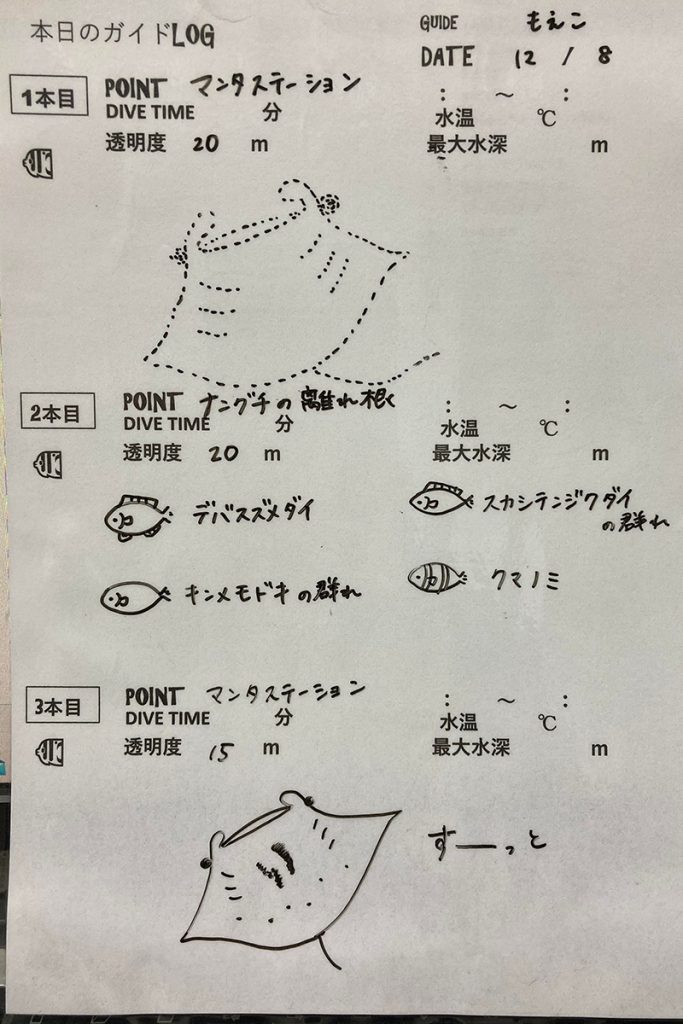 本日のガイドLOG
GUIDE もえこ
DATE 12 / 8
1本目 POINT マンタステーション : ～ :
DIVE TIME 分 水温 ℃
透明度 20 m 最大水深 m
2本目 POINT ナングチの離れ根く : ～ :
DIVE TIME 分 水温 ℃
透明度 20 m 最大水深 m
デバスズメダイ
スカシテンジクダイ
の群れ
キンメモドキの群れ
クマノミ
3本目 POINT マンタステーション : ～ :
DIVE TIME 分 水温 ℃
透明度 15 m 最大水深 m
すーっと